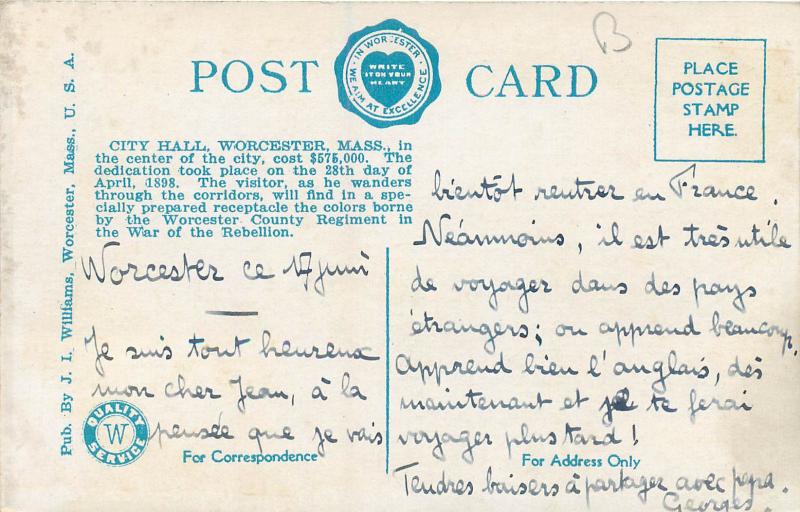 B
POST CARD
IN WORCESTER
WRITE
IT ON YOUR
HEART
WE AIM AT EXCELLENCE
PLACE
POSTAGE
STAMP
HERE.
CITY HALL, WORCESTER, MASS., in
the center of the city, cost $575,000. The
dedication took place on the 28th day of
April, 1898. The visitor, as he wanders
through the corridors, will find in a spe-
cially prepared receptacle the colors borne
by the Worcester County Regiment in
the War of the Rebellion.
Pub. By J. I. Williams, Worcester, Mass., U. S. A.
Worcester ce 17 juin
Je suis tout heureux
mon cher Jean, à la
pensée que je vais
QUALITY
W
SERVICE
For Correspondence
bientôt rentrer en France.
Néanmoins, il est très utile
de voyager dans des pays
étrangers; on apprend beaucoup.
Apprend bien l'anglais, dès
maintenant et je te ferai
voyager plus tard!
For Address Only
Tendres baisers à partager avec papa.
Georges.